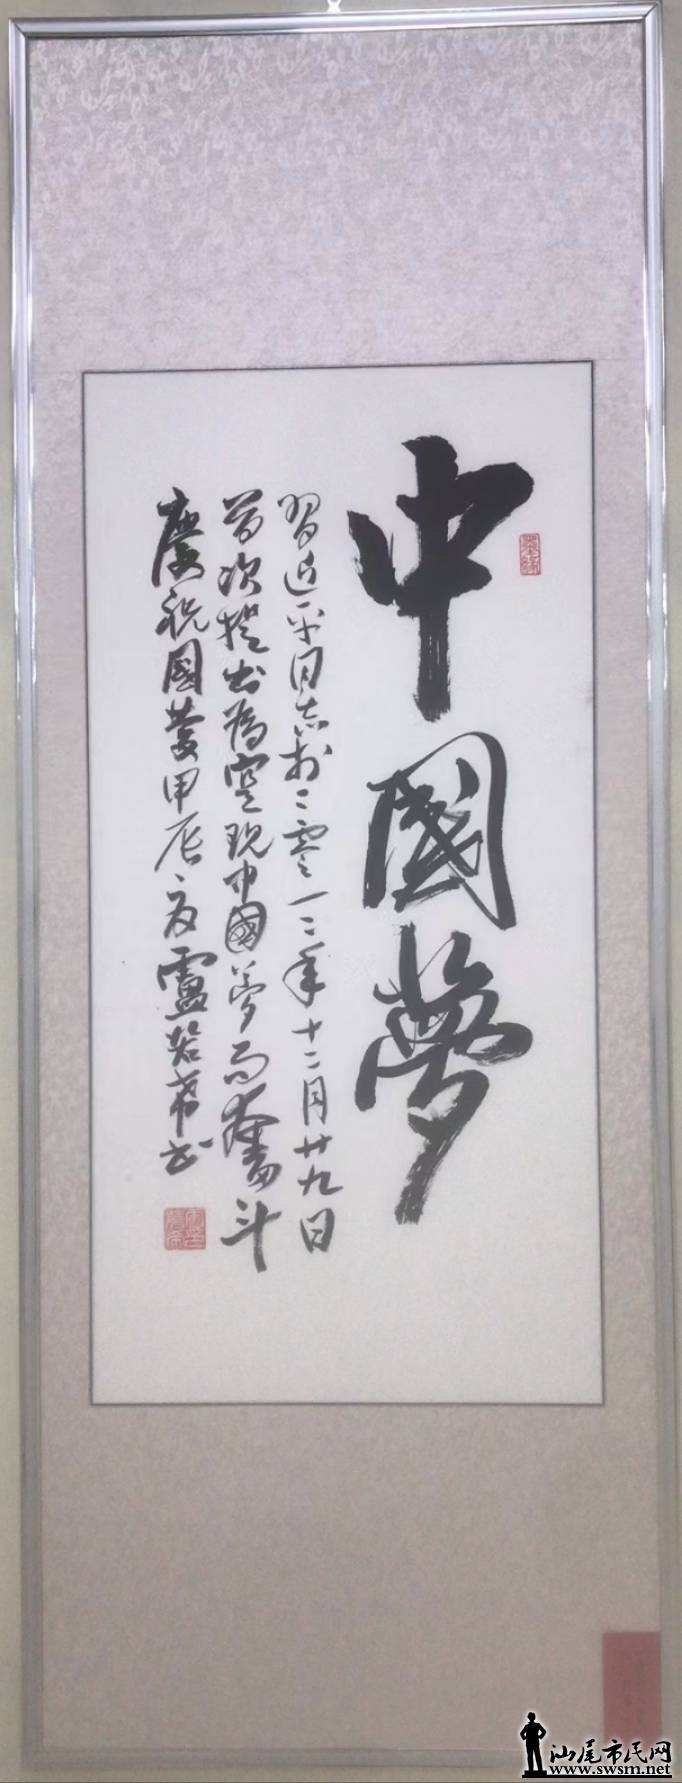 中國夢
習近平同志於二零一二年十一月廿九日
首次提出為實现中國夢而奮斗
慶祝國慶甲辰之夏盧若帝书
汕尾市民网
www.swsm.net